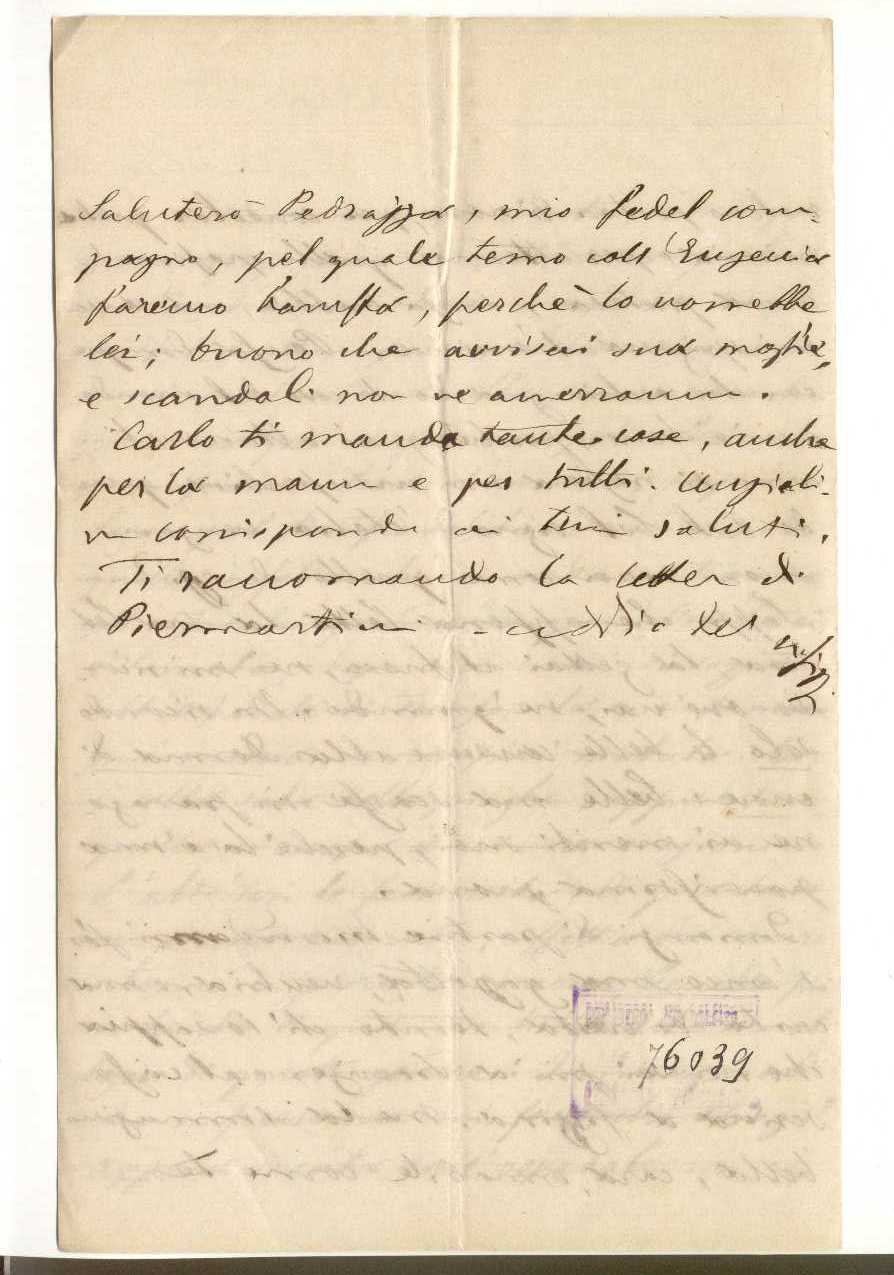 Saluterò Pedrazza, mio fedel com-
pagno, pel quale temo coll'Eugenia
faremo baruffa, perchè lo vorrebbe
lei; buono che avvisai sua moglie,
e scandali non ne avverranno.
Carlo ti manda tante cose, anche
per la mamma e per tutti. Angioli-
na corrisponde ai tuoi saluti.
Ti raccomando la lettera di
Piermartini - addio del
76039